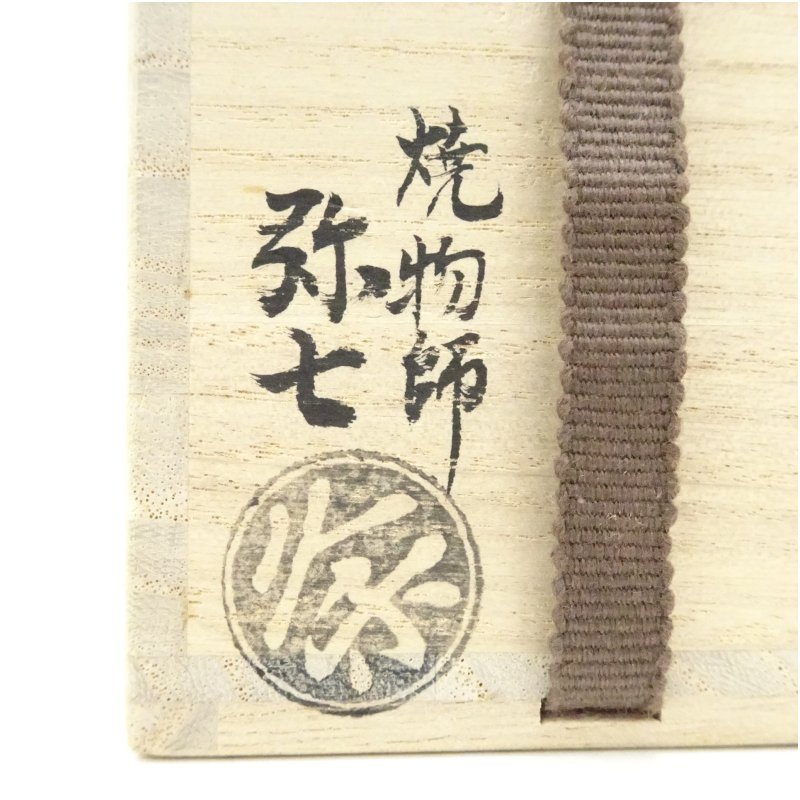 焼物師
弥七